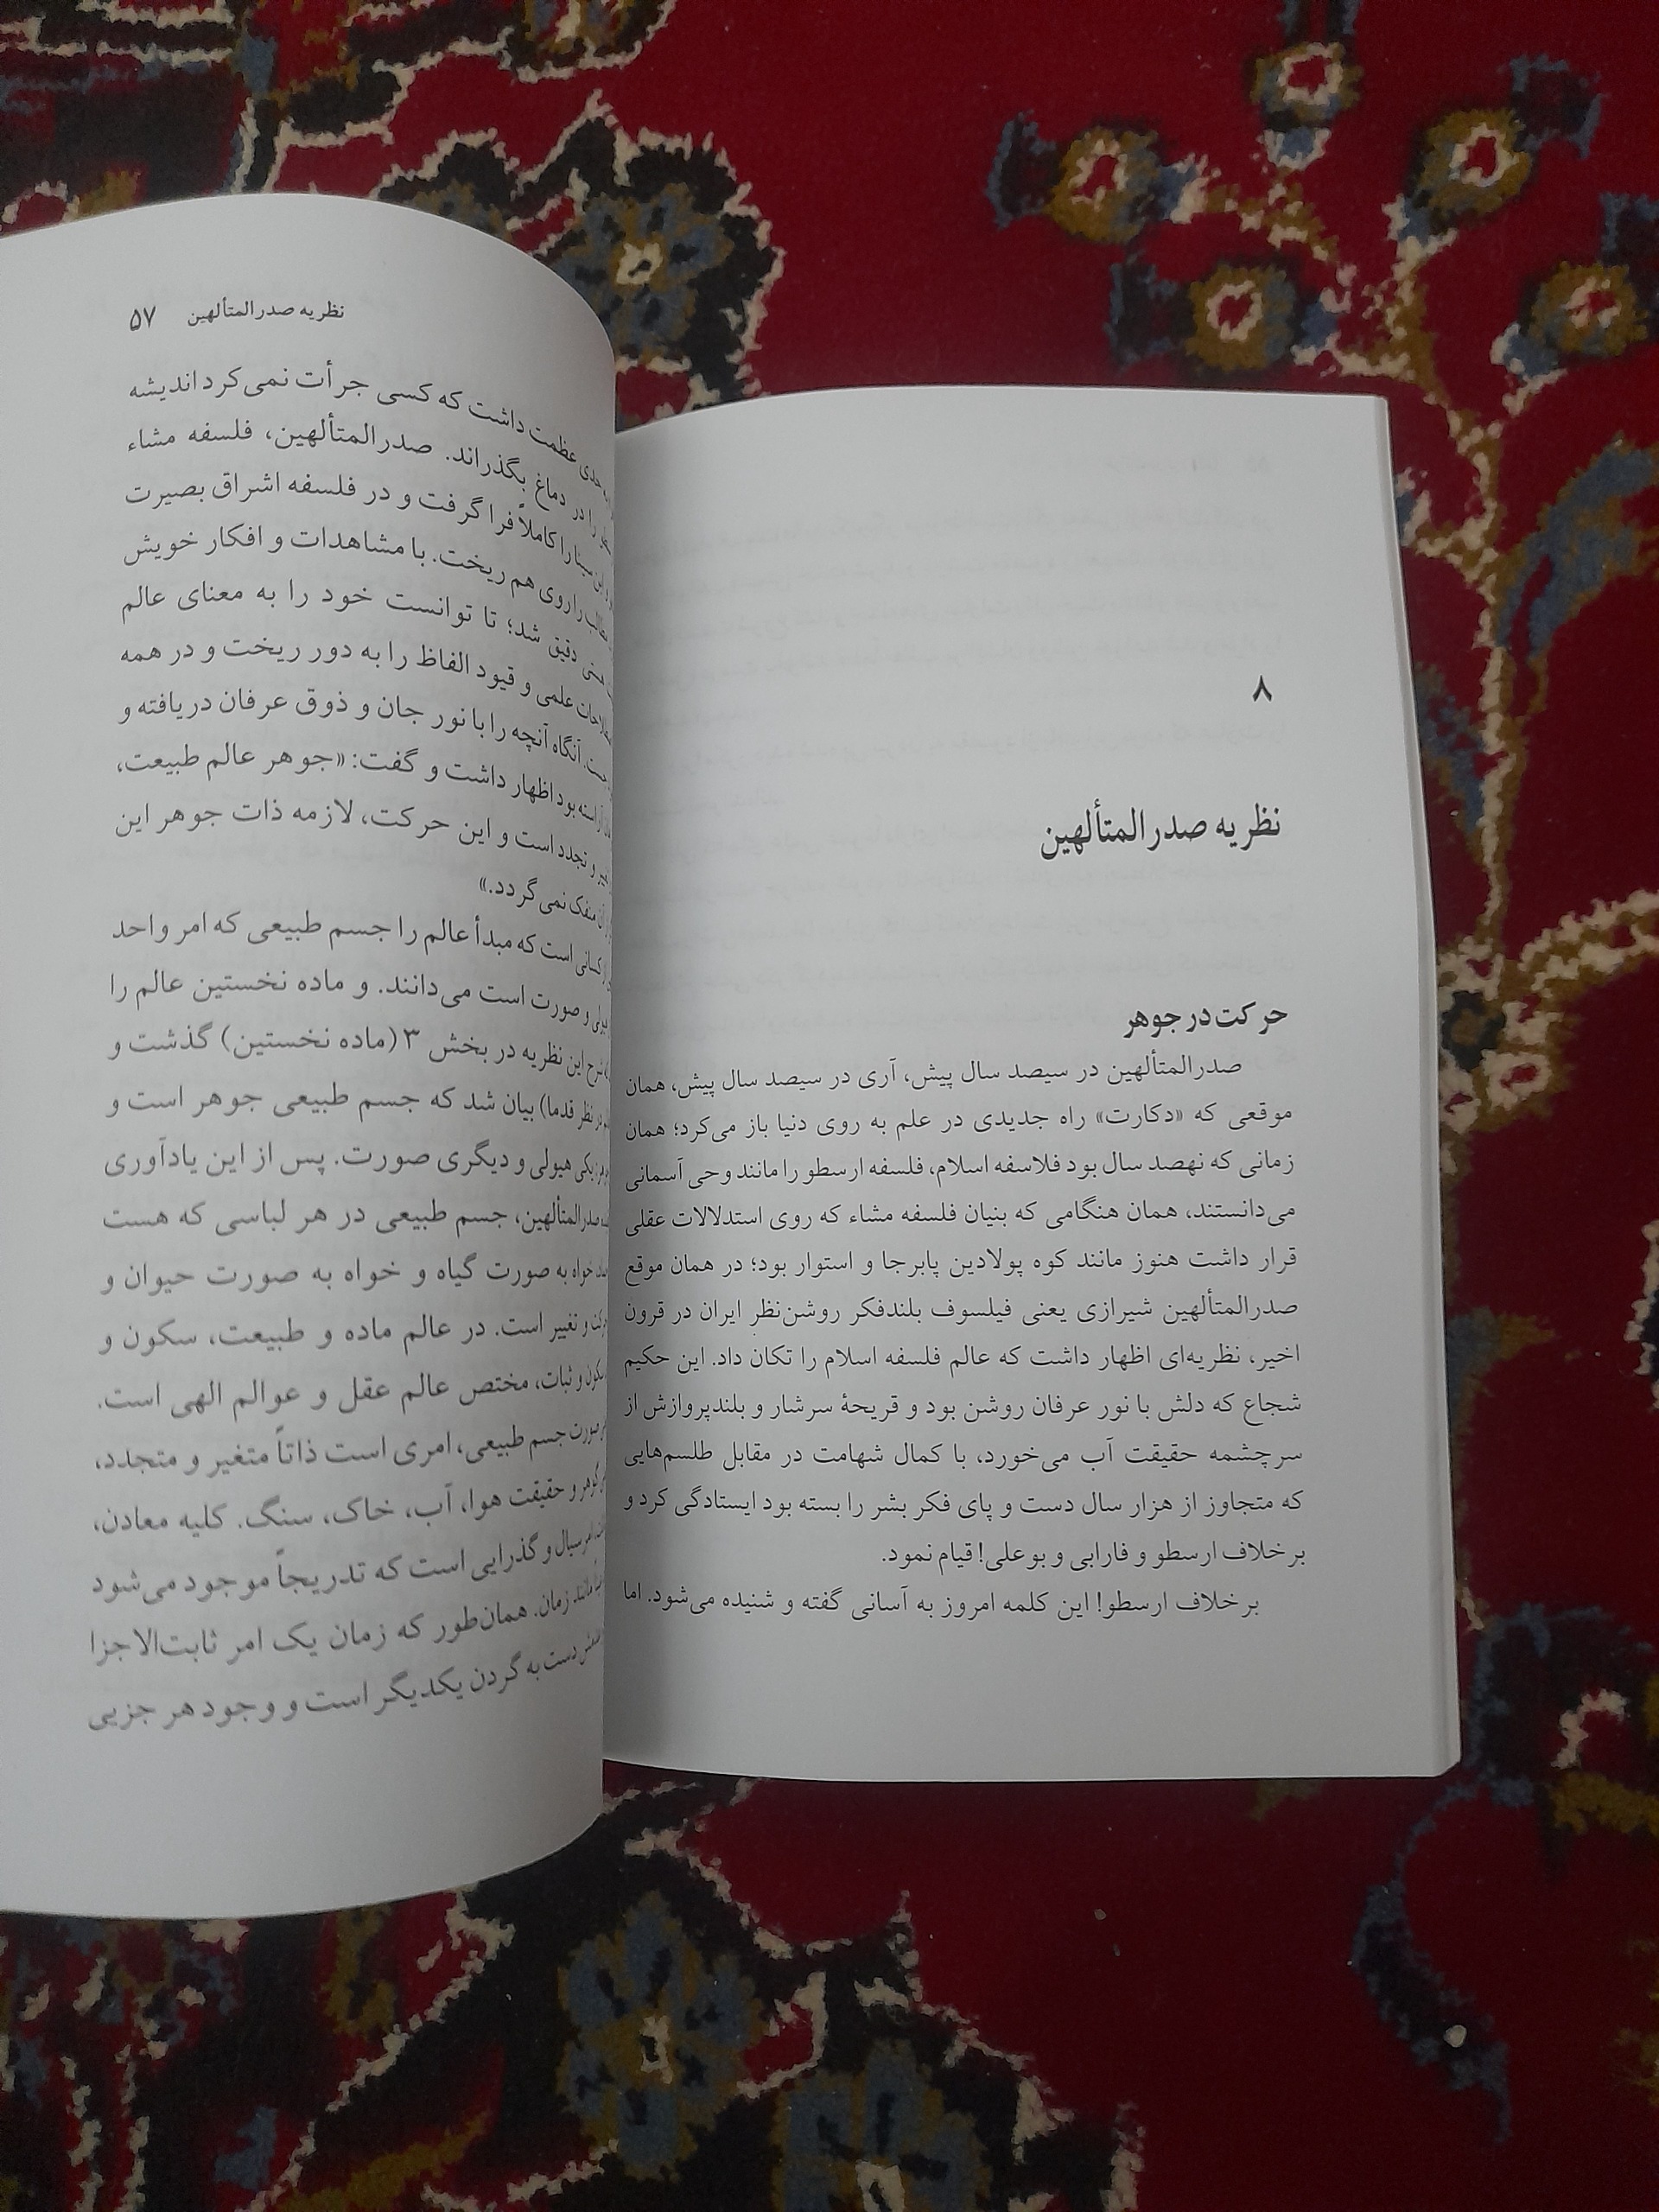 ۸
نظریه صدرالمتألهین
حرکت در جوهر
صدرالمتألهین در سیصد سال پیش، آری در سیصد سال پیش، همان
موقعی که «دکارت» راه جدیدی در علم به روی دنیا باز می‌کرد؛ همان
زمانی که نهصد سال بود فلاسفه اسلام، فلسفه ارسطو را مانند وحی آسمانی
می‌دانستند، همان هنگامی که بنیان فلسفه مشاء که روی استدلالات عقلی
قرار داشت هنوز مانند کوه پولادین پابرجا و استوار بود؛ در همان موقع
صدرالمتألهین شیرازی یعنی فیلسوف بلندفکر روشن‌نظر ایران در قرون
اخیر، نظریه‌ای اظهار داشت که عالم فلسفه اسلام را تکان داد. این حکیم
شجاع که دلش با نور عرفان روشن بود و قریحهٔ سرشار و بلندپروازش از
سرچشمه حقیقت آب می‌خورد، با کمال شهامت در مقابل طلسم‌هایی
که متجاوز از هزار سال دست و پای فکر بشر را بسته بود ایستادگی کرد و
برخلاف ارسطو و فارابی و بوعلی! قیام نمود.
برخلاف ارسطو! این کلمه امروز به آسانی گفته و شنیده می‌شود. اما
نظریه صدرالمتألهین ۵۷
حدی عظمت داشت که کسی جرأت نمی‌کرد اندیشه
را در دماغ بگذراند. صدرالمتألهین، فلسفه مشاء
را کاملاً فرا گرفت و در فلسفه اشراق بصیرت
را روی هم ریخت. با مشاهدات و افکار خویش
دقیق شد؛ تا توانست خود را به معنای عالم
علمی و قیود الفاظ را به دور ریخت و در همه
آنگاه آنچه را با نور جان و ذوق عرفان دریافته و
بود اظهار داشت و گفت: «جوهر عالم طبیعت،
و تجدد است و این حرکت، لازمه ذات جوهر این
منفک نمی‌گردد.»
کسانی است که مبدأ عالم را جسم طبیعی که امر واحد
و صورت است می‌دانند. و ماده نخستین عالم را
شرح این نظریه در بخش ۳ (ماده نخستین) گذشت و
در نظر قدما) بیان شد که جسم طبیعی جوهر است و
یکی هیولی و دیگری صورت. پس از این یادآوری
صدرالمتألهین، جسم طبیعی در هر لباسی که هست
خواه به صورت گیاه و خواه به صورت حیوان و
و تغییر است. در عالم ماده و طبیعت، سکون و
سکون و ثبات، مختص عالم عقل و عوالم الهی است.
صورت جسم طبیعی، امری است ذاتاً متغیر و متجدد،
گوهر و حقیقت هوا، آب، خاک، سنگ. کلیه معادن،
امر سیال و گذرایی است که تدریجاً موجود می‌شود
مانند زمان. همان‌طور که زمان یک امر ثابت‌الاجزا
دست به گردن یکدیگر است و وجود هر جزیی